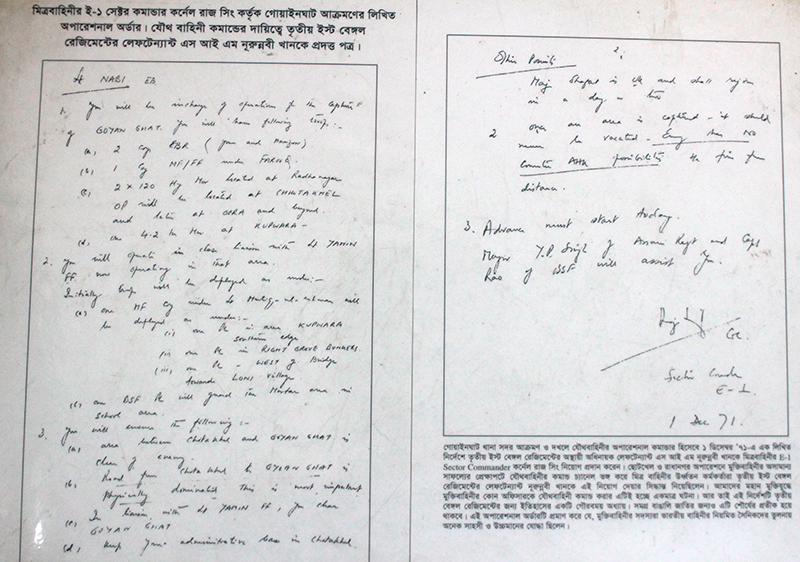 মিত্রবাহিনীর ই-১ সেক্টর কমান্ডার কর্নেল রাজ সিং কর্তৃক গোয়াইনঘাট আক্রমণের লিখিত
অপারেশনাল অর্ডার। যৌথ বাহিনী কমান্ডের দায়িত্বে তৃতীয় ইস্ট বেঙ্গল
রেজিমেন্টের লেফটেন্যান্ট এস আই এম নূরুন্নবী খানকে প্রদত্ত পত্র।
Lt NABI EB
1. You will be incharge of operations for the capture
of GOYAN GHAT. You will have following troops:-
(a) 2 Coy EBR
(b) 1 Coy MF/FF under FAROOQ.
(c) 2 x 120 Hy Mor located at Radhanagar
OP will be located at CHHOTAKHEL
and later at and beyond.
(d) One 4.2 In Mor at KUPWARA -
2. You will operate in close liaison with Lt YAMIN
FF now operating in that area.
Initially troops will be deployed as under:-
(a) One MF Coy under Lt will
be deployed as under:-
(i) One Pl in area KUPWARA
southern edge
(ii) One Pl in RIGHT GROVE BUNKERS.
(iii) One Pl - WEST of Bridge
towards LONI village
(b) One BSF Pl will guard the Mortar area in
school area.
3. You will ensure the following:-
(a) area between Chotakhel and GOYAN GHAT is
clear of enemy.
(b) Road from Chotakhel to GOYAN GHAT is
physically dominated. This is most important
(c) In liaison with Lt YAMIN FF, you clear
GOYAN GHAT
(d) Keep your administrative base in Chotakhel.
2.
Other Points
Maj Shafat is OK and shall rejoin
in a day or two
2. Once an area is captured - it should
never be vacated - Enemy has NO
Counter Attk possibility. He fires from
distance.
3. Advance must start today.
Major Y.P. Singh of Assam Regt and Capt
Rao of BSF will assist you.
Col
Sector Comdr
E-1
1 Dec 71.
গোয়াইনঘাট থানা সদর আক্রমণ ও দখলে যৌথবাহিনীর অপারেশনাল কমান্ডার হিসেবে ১ ডিসেম্বর '৭১-এ এক লিখিত
নির্দেশে তৃতীয় ইস্ট বেঙ্গল রেজিমেন্টের অস্থায়ী অধিনায়ক লেফটেন্যান্ট এস আই এম নূরুন্নবী খানকে মিত্রবাহিনীর E-1
Sector Commander কর্নেল রাজ সিং নিয়োগ প্রদান করেন। ছোটখেল ও রাধানগর অপারেশনে মুক্তিবাহিনীর অসামান্য
সাফল্যের প্রেক্ষাপটে যৌথবাহিনীর কমান্ড চ্যানেল ভঙ্গ করে মিত্র বাহিনীর ঊর্ধ্বতন কর্মকর্তারা তৃতীয় ইস্ট বেঙ্গল
রেজিমেন্টের লেফটেন্যান্ট নূরুন্নবী খানকে এই নিয়োগ দেয়ার সিদ্ধান্ত নিয়েছিলেন। আমাদের মহান মুক্তিযুদ্ধে
মুক্তিবাহিনীর কোন অফিসারকে যৌথবাহিনী কমান্ড করার এটিই হচ্ছে একমাত্র ঘটনা। আর তাই এই নির্দেশটি তৃতীয়
বেঙ্গল রেজিমেন্টের জন্য ইতিহাসের একটি গৌরবময় অধ্যায়। সমগ্র বাঙালি জাতির জন্যও এটি শৌর্যের প্রতীক হয়ে
থাকবে। এই অপারেশনাল অর্ডারটি প্রমাণ করে যে, মুক্তিবাহিনীর সদস্যরা ভারতীয় বাহিনীর নিয়মিত সৈনিকদের তুলনায়
অনেক সাহসী ও উচ্চমানের যোদ্ধা ছিলেন।